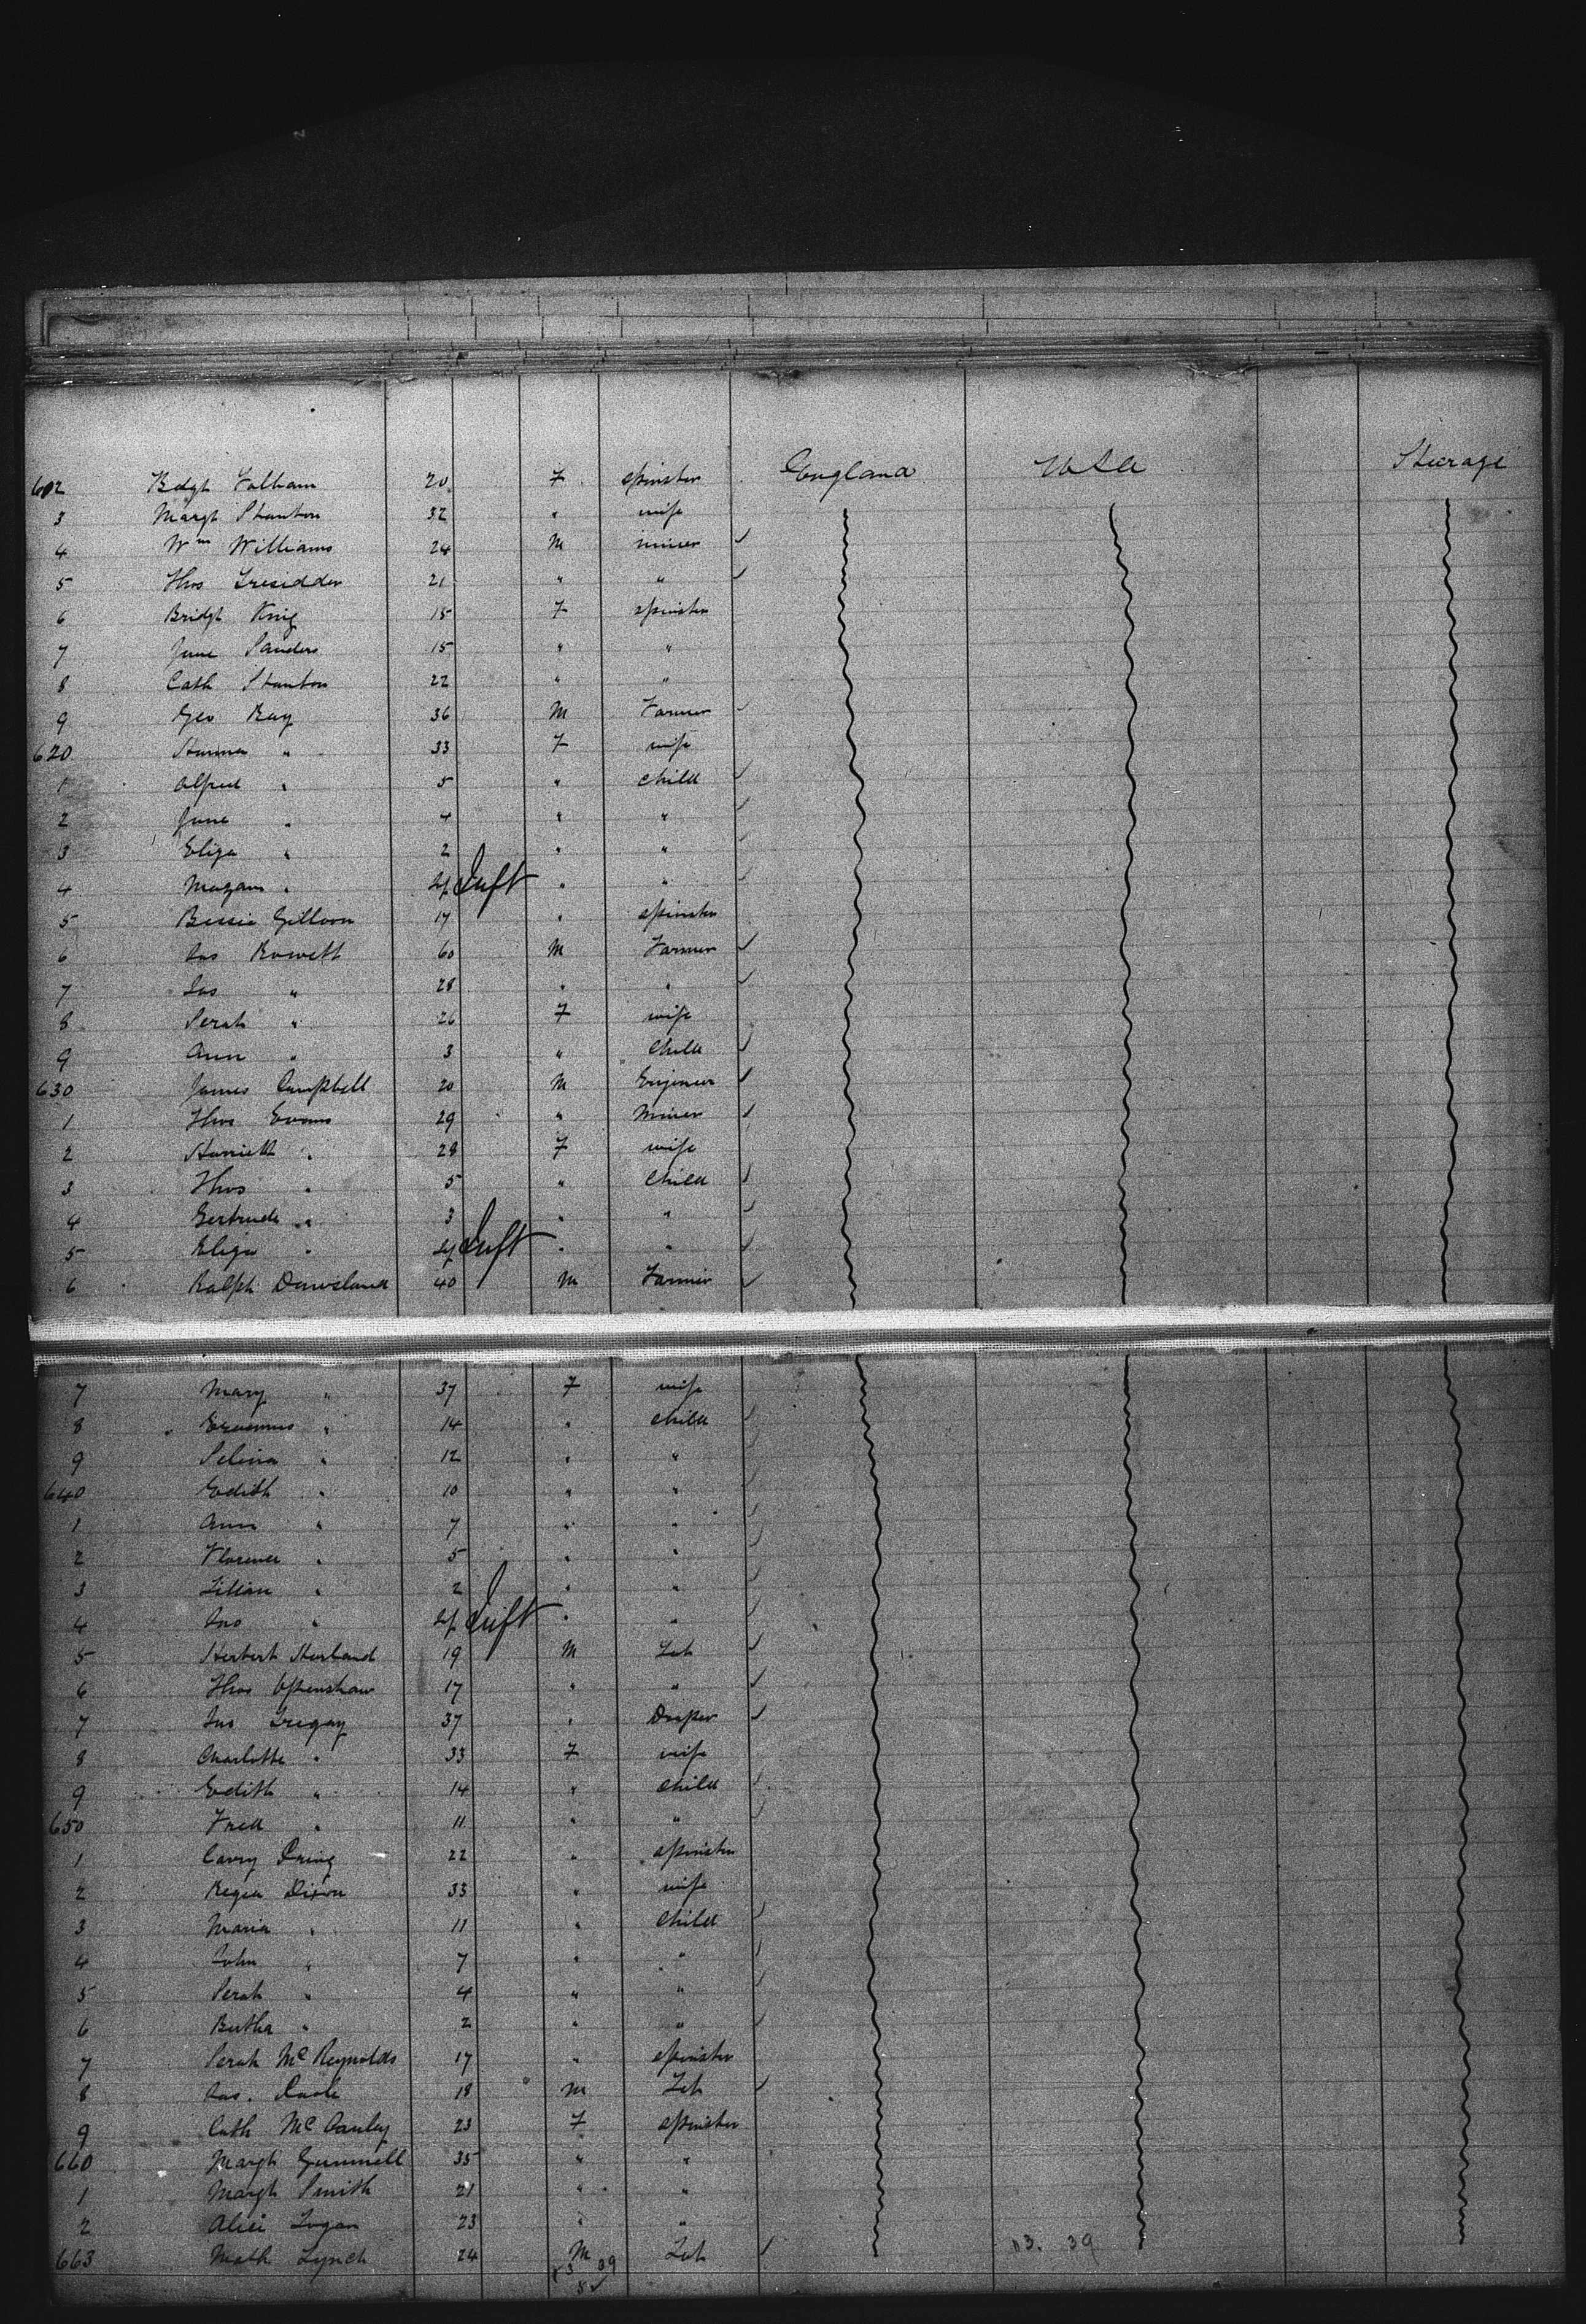 602 Bdgt Valham 20 F spinster England USA Steerage
3 Margt Stanton 32 " wife
4 Wm Williams 24 M miner ✓
5 Thos Tresidder 21 " " ✓
6 Bridgt King 15 F spinster
7 Jane Sanders 15 " "
8 Cath Stanton 22 " "
9 Geo Ray 36 M Farmer ✓
620 Hanna " 33 F wife
1 Alfred " 5 " child ✓
2 Jane " 4 " " ✓
3 Eliza " 2 " " ✓
4 " Inft " " ✓
5 Bessie Gilloon 17 " spinster
6 Jas Rowett 60 M Farmer ✓
7 Jas " 28 " " ✓
8 Serah " 26 F wife
9 Ann " 3 " child ✓
630 James Campbell 20 M Engineer ✓
1 Thos Evans 29 " Miner ✓
2 Harriett " 28 F wife
3 Thos " 5 " child ✓
4 Gertrude " 3 " " ✓
5 Eliza " Inft " " ✓
6 Ralph Dawsland 40 M Farmer ✓
7 Mary " 37 F wife
8 Erasmus " 14 " child ✓
9 Selina " 12 " " ✓
640 Edith " 10 " " ✓
1 Ann " 7 " " ✓
2 Florence " 5 " " ✓
3 Lillian " 2 " " ✓
4 Jno " Inft " " ✓
5 Herbert 19 M Lab ✓
6 Thos Openshaw 17 " " ✓
7 Jno Tregay 37 " Draper ✓
8 Charlotte " 33 F wife
9 Edith " 14 " child ✓
650 Fred " 11 " " ✓
1 Carry Pring 22 " spinster
2 Dixon 33 " wife
3 Maria " 11 " child ✓
4 John " 7 " " ✓
5 Serah " 4 " " ✓
6 Bertha " 2 " " ✓
7 Serah McReynolds 17 " spinster
8 Jas. 18 M Lab ✓
9 Cath McCauley 23 F spinster
660 Margt Gummell 35 " "
1 Margt Smith 21 " "
2 Alice Logan 23 " "
663 Math Lynch 24 M Lab ✓
39